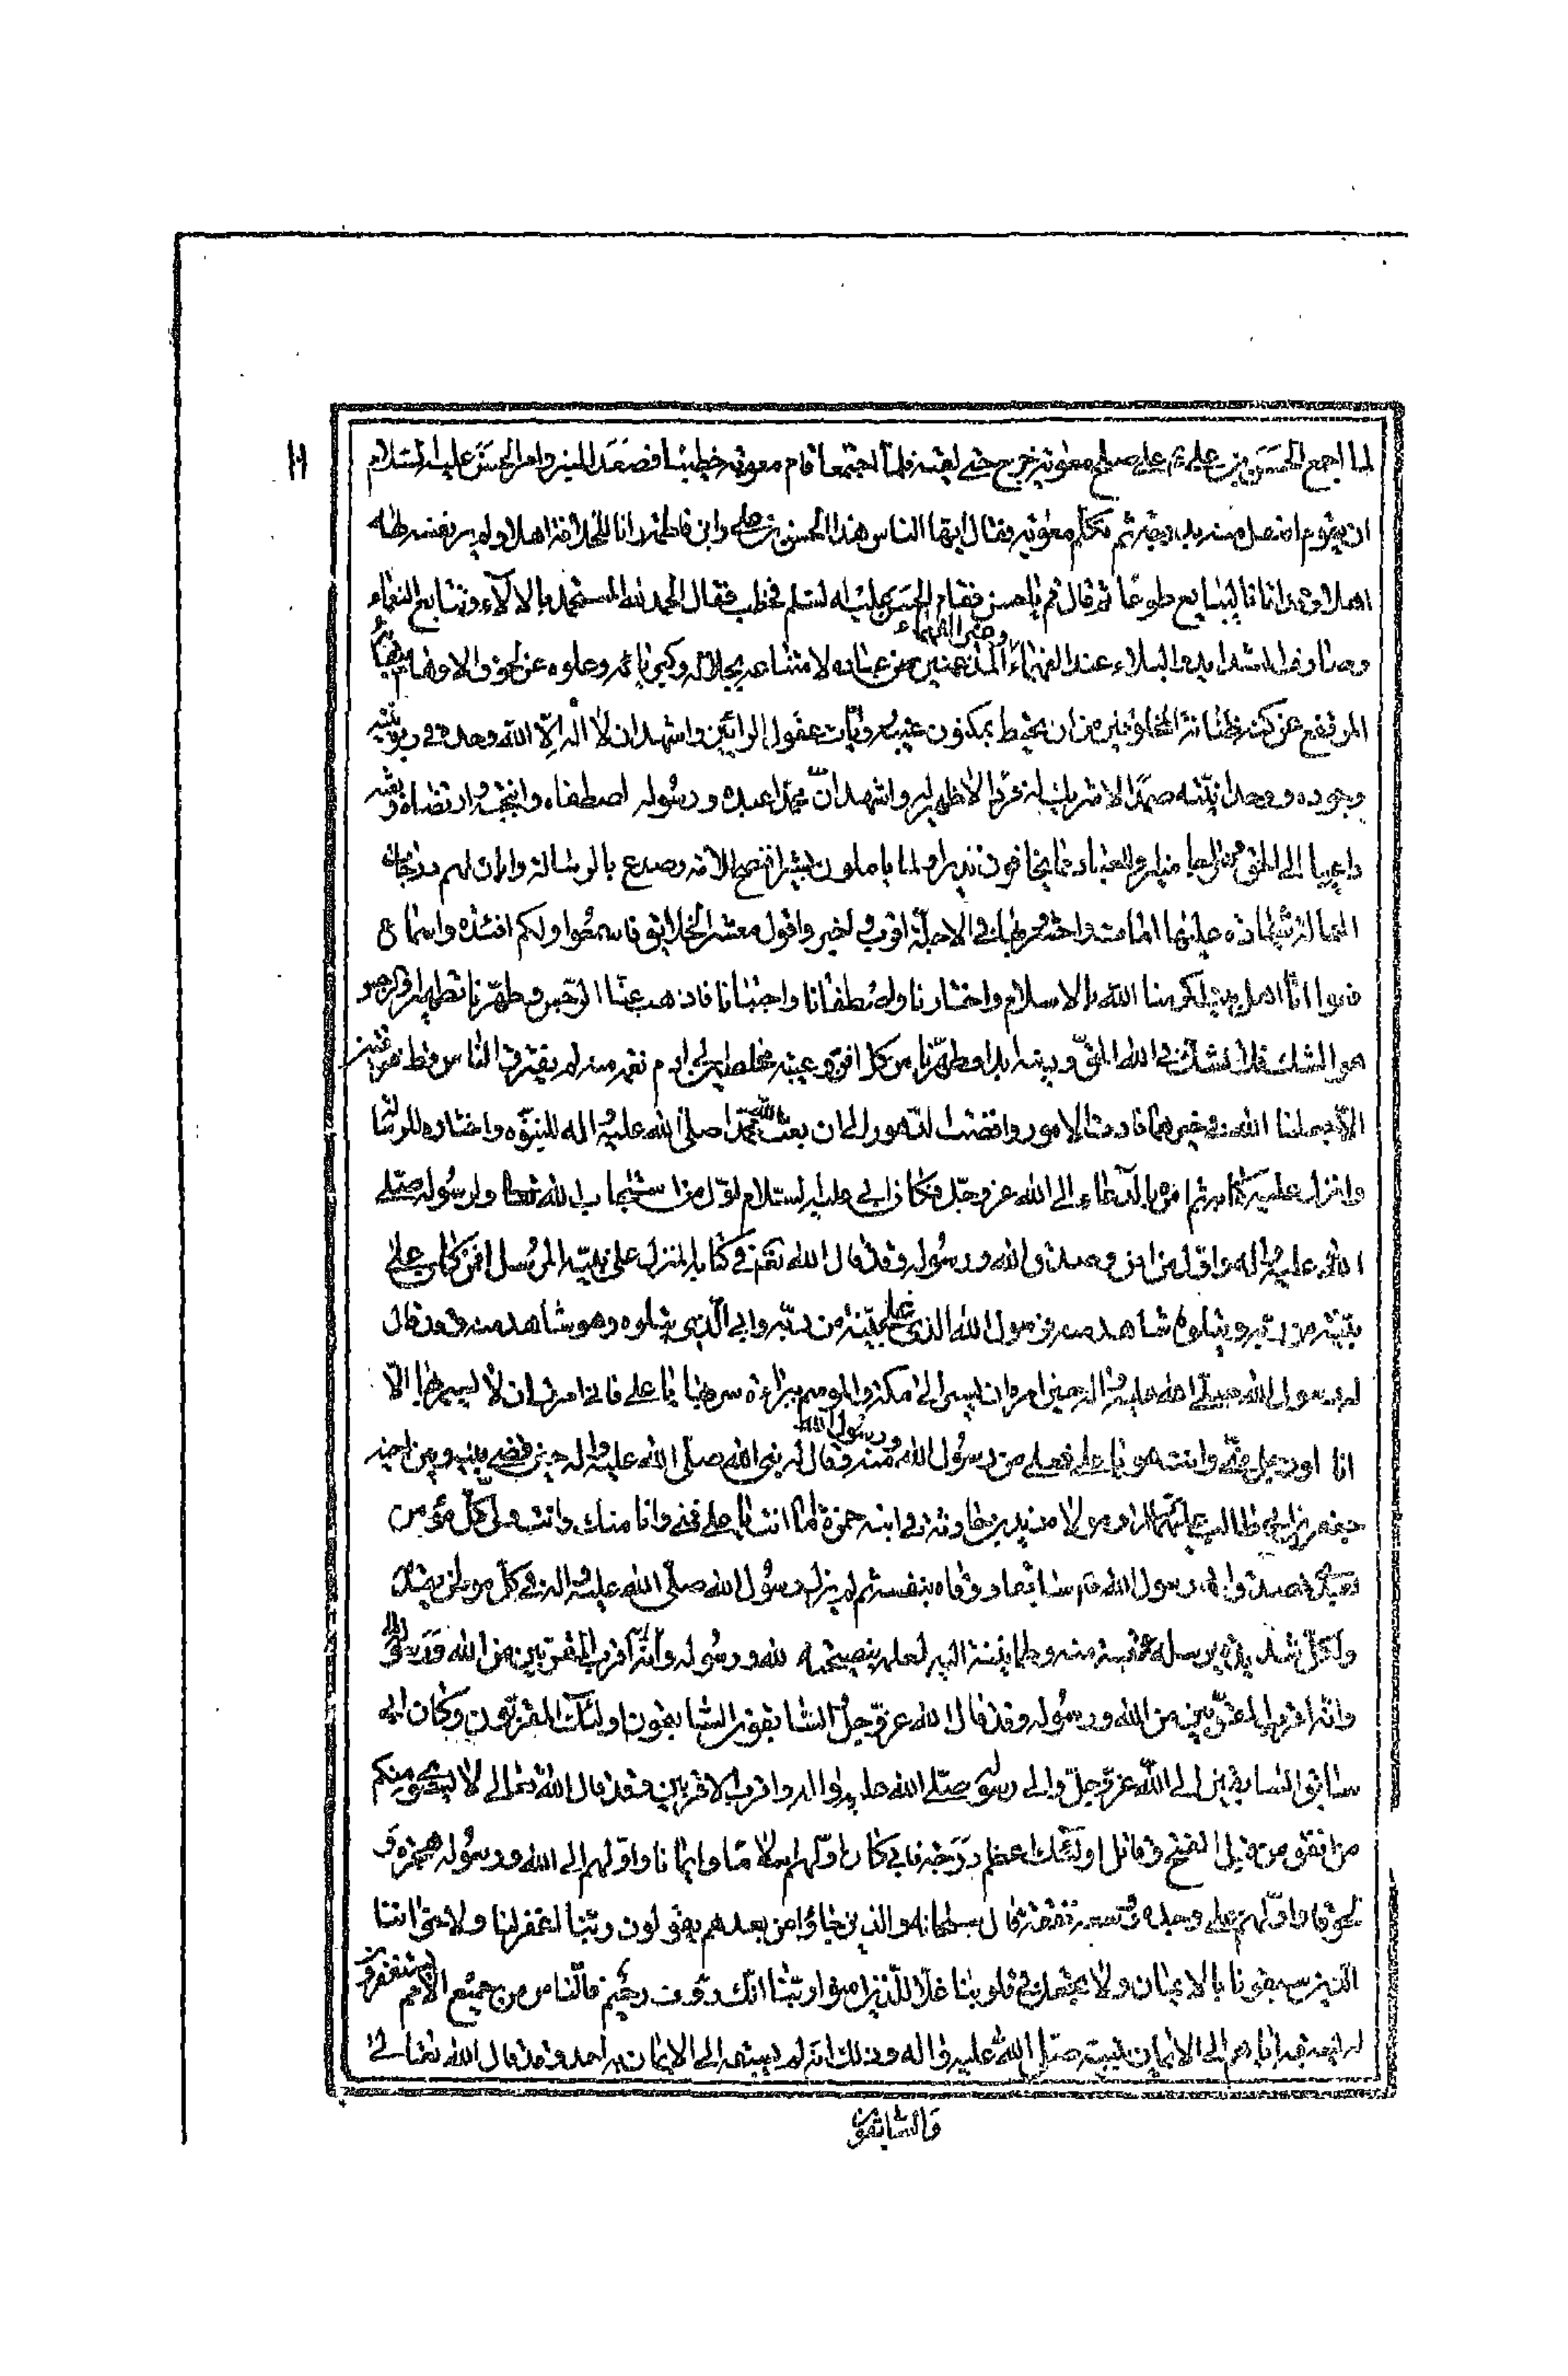 لما اجمع الحسن بن علي ع على صلح معوية خرج حتى لقيه فلما اجتمعا قام معوية خطيبا فصعد المنبر وامر الحسن عليه السلام
ان يقوم اسفل منه بدرجة ثم تكلم معوية فقال ايها الناس هذا الحسن بن علي وابن فاطمة رانا للخلافة اهلا ولم ير نفسه لها
اهلا وقد اتانا ليبايع طوعا ثم قال قم يا حسن فقام الحسن عليه السلم فخطب فقال الحمد لله المستحمد بالالاء وتتابع النعماء
وصارف الشدايد والبلاء عند الفهماء وغير الفهماء المذعنين من عباده لامتناعه بجلاله وكبريائه وعلوه عن لحوق الاوهام ببقائه
المرتفع عن كنه المخلوقين من ان يحيط بمكنون غيبه رويات عقول الرائين واشهد ان لا اله الا الله وحده في ربوبيته
وجوده ووحدانيته صمدا لا شريك له فردا لا ظهير له واشهد ان محمدا عبده ورسوله اصطفاه وانتجبه وارتضاه وبعثه
داعيا الى الحق منيرا وللعباد مما يخافون نذيرا ولما ياملون بشيرا فنصح للامة وصدع بالرسالة وابان لهم درجات
العمالة عليها امات واحشر وبها في الاجلة اقرب واحبر واقول معشر الخلايق فاسمعوا ولكم افئدة واسماع
فعوا انا اهل بيت اكرمنا الله بالاسلام واختارنا واصطفانا واجتبانا فاذهب عنا الرجس وطهرنا تطهيرا والرجس
هو الشك فلا نشك في الله الحق ودينه ابدا وطهرنا من كل افن وعيبة مخلصين الى ادم نعمة منه لم يفترق الناس قط فرقتين
الا جعلنا الله في خيرهما فادت الامور وافضت الدهور الى ان بعث الله محمدا صلى الله عليه واله للنبوة واختاره للرسالة
وانزل عليه كتابه ثم امره بالدعاء الى الله عز وجل فكان ابي عليه السلام اول من استجاب لله تعالى ولرسوله صلى
الله عليه واله واول من امن وصدق الله ورسوله وقد قال الله تعالى في كتابه المنزل على نبيه المرسل افمن كان على
بينة من ربه ويتلوه شاهد منه فرسول الله الذي على بينة من ربه وابي الذي يتلوه وهو شاهد منه وقد قال
له رسول الله صلى الله عليه واله حين امره ان يسير الى مكة والموسم ببراءة سر بها يا علي فاني امرت ان لا يسير بها الا
انا او رجل مني وانت هو يا علي فعلي من رسول الله ورسول الله منه وقال له نبي الله صلى الله عليه واله حين قضى بينه وبين اخيه
جعفر بن ابي طالب عليهما السلام ومولاه زيد بن حارثة في ابنة حمزة اما انت يا علي فمني وانا منك وانت ولي كل مؤمن
بعدي فصدق ابي رسول الله ص سابقا ووقاه بنفسه ثم لم يزل رسول الله صلى الله عليه واله في كل موطن يقدمه
ولكل شديدة يرسله ثقة منه وطمانينة اليه لعلمه بنصيحته لله ورسوله وانه اقرب المقربين من الله ورسوله
وانه اقرب المقربين من الله ورسوله وقد قال الله عز وجل السابقون السابقون اولئك المقربون وكان ابي
سابق السابقين الى الله عز وجل والى رسوله صلى الله عليه واله واقرب الاقربين وقد قال الله تعالى لا يستوي منكم
من انفق من قبل الفتح وقاتل اولئك اعظم درجة فابي كان اولهم اسلاما وايمانا واولهم الى الله ورسوله هجرة و
لحوقا واولهم على وجده ووسعه نفقة قال سبحانه والذين جاؤا من بعدهم يقولون ربنا اغفر لنا ولاخواننا
الذين سبقونا بالايمان ولا تجعل في قلوبنا غلا للذين امنوا ربنا انك رؤف رحيم فالناس من جميع الامم يستغفرون
له بسبقه اياهم الى الايمان بنبيه صلى الله عليه واله وذلك انه لم يسبقه الى الايمان به احد وقد قال الله تعالى
والسابقون